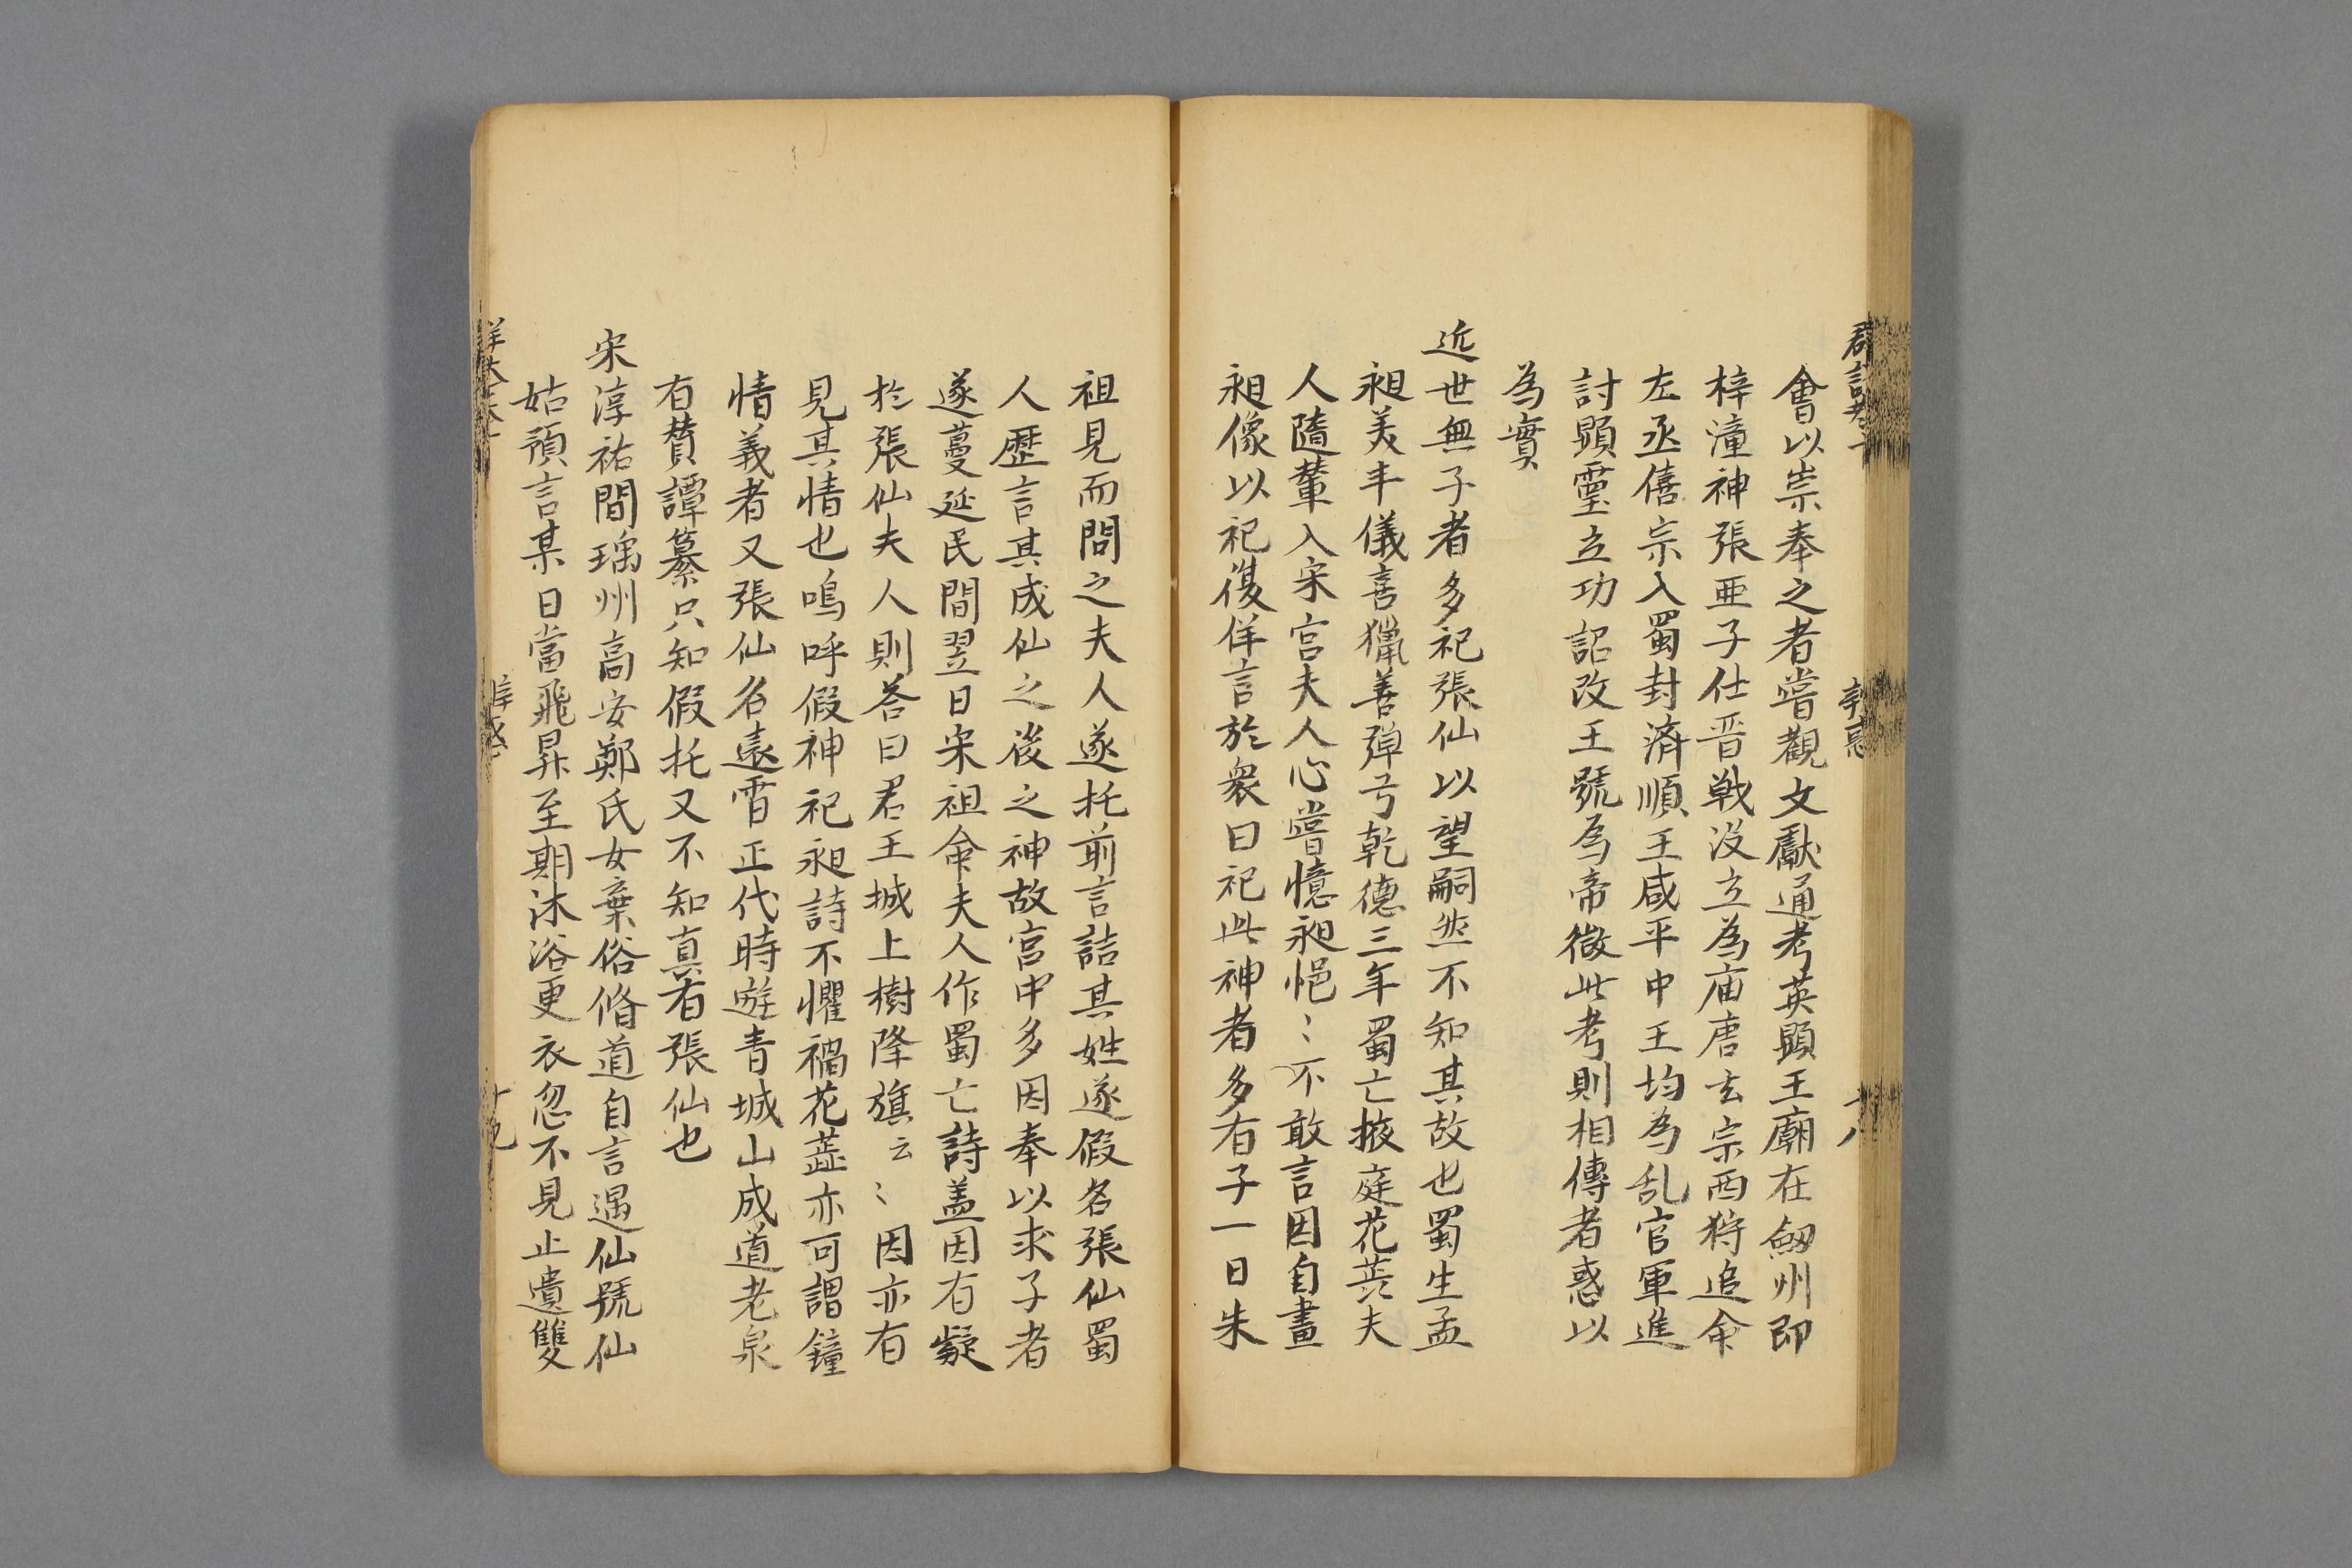 會以崇奉之者嘗觀文獻通考英顕王廟在劔州即
梓潼神張亜子仕晋戦没立為庙唐玄宗西狩追命
左丞僖宗入蜀封濟順王咸平中王均為乱官軍進
討顕靈立功詔改王號為帝徵此考則相傳者惑以
為實
近世無子者多祀張仙以望嗣然不知其故也蜀生孟
昶美丰儀喜獵善弾弓乾德三年蜀亡掖庭花蕋夫
人隨輦入宋宫夫人心嘗憶昶悒〻不敢言因自畫
昶像以祀復佯言於衆曰祀此神者多有子一日朱
祖見而問之夫人遂托前言詰其姓遂假名張仙蜀
人歷言其成仙之後之神故宫中多因奉以求子者
遂蔓延民間翌日宋祖命夫人作蜀亡詩盖因有疑
於張仙夫人則荅曰君王城上樹降旗云〻因亦有
見其情也嗚呼假神祀昶詩不懼禍花蕋亦可謂鐘
情義者又張仙名遠霄五代時遊青城山成道老泉
有賛譚纂只知假托又不知真有張仙也
宋淳祐間瑀州高安鄭氏女棄俗脩道自言遇仙號仙
姑預言某日當飛昇至期沐浴更衣忽不見止遺雙